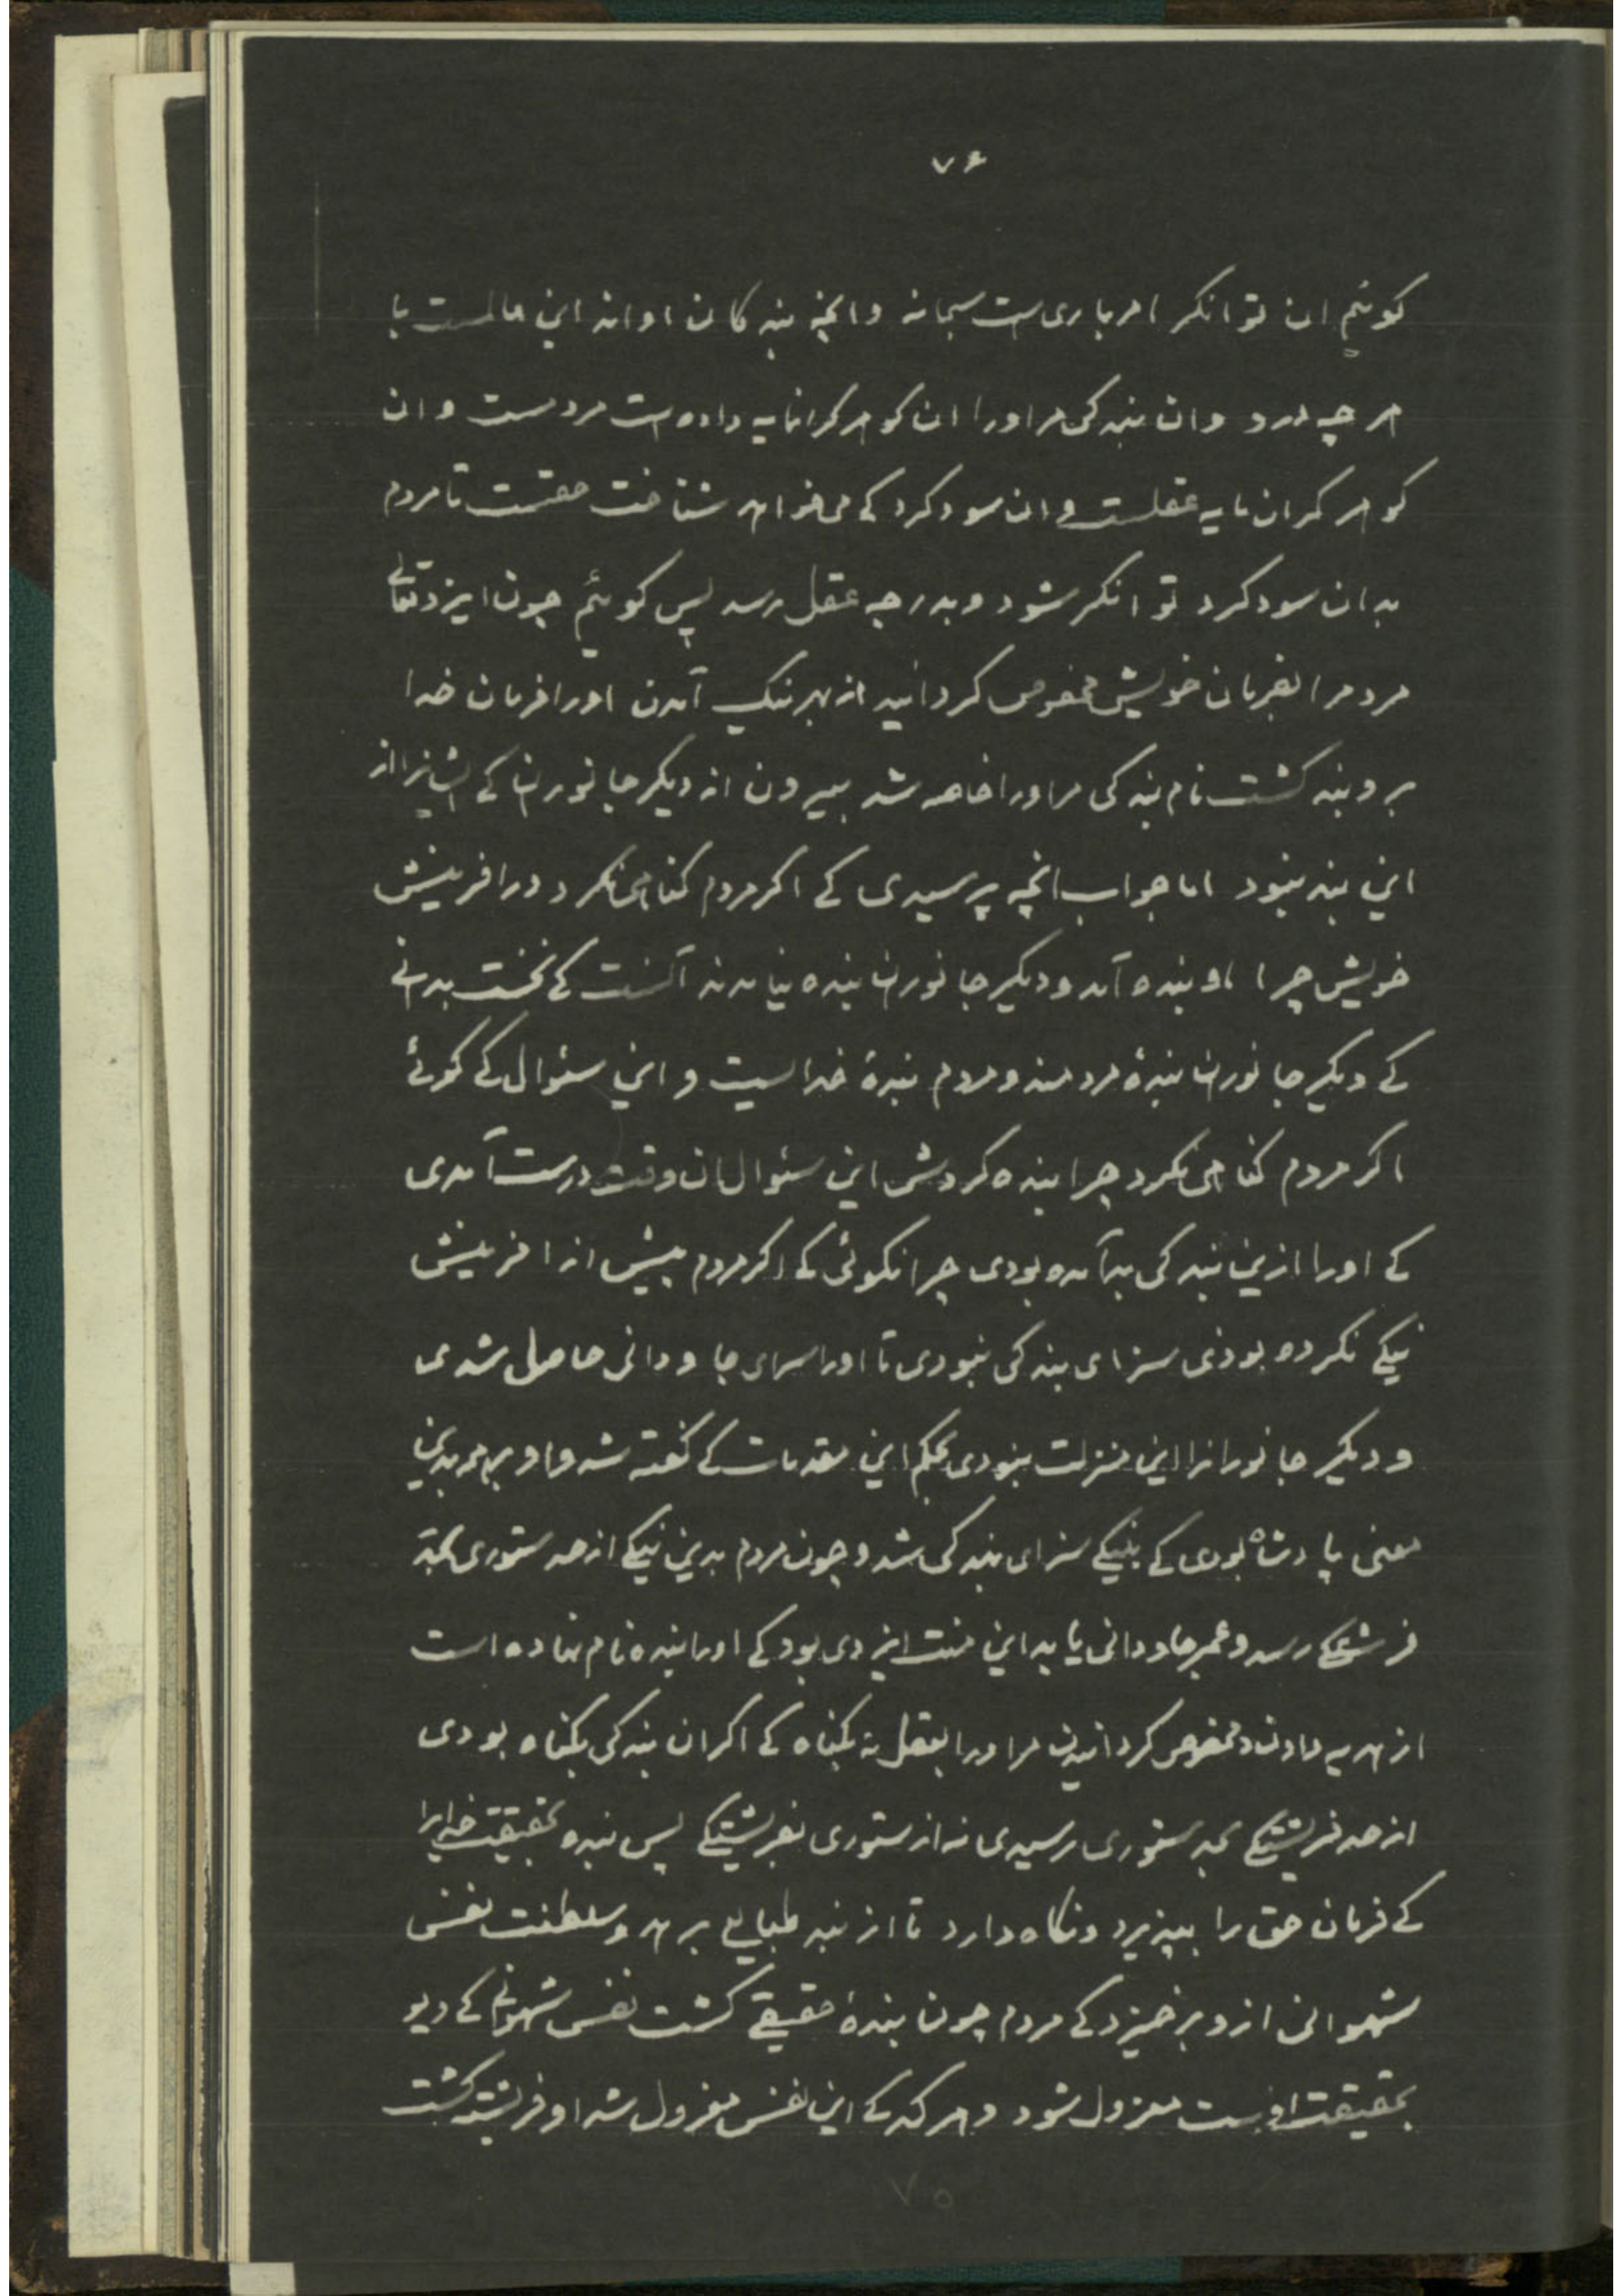 ۷۶
کوئیم ان توانکر امر باری است سبحانه وانچه بنه کان اواند این عالمست با
هر چه درو وان بندکی مر اورا ان کوهر کرانمایه داده است مردمست وان
کوهر کران مایه عقلست و ان سود کرد کے می خواهد شناخت حقست تا مردم
بدان سود کرد توانکر شود و بدرجه عقل رسد پس کوئیم چون ایزد تعالے
مردمرا بفرمان خویش مخصوص کردانید از بهر نیک آمدن اورا فرمان خدا
برو بند کشت نام بندکی مر اورا خاصه شد بیرون از دیکر جانوران کے ایشانرا از
این بند نبود اما جواب انچه پرسیدی کے اکر مردم کناهی نکرد در افرینش
خویش چرا او بنده آمد و دیکر جانوران بنده نیامدند آنست کے نخست بدانے
کے دیکر جانوران بندۀ مردمند و مردم بندۀ خدایست و این سئوال کے کوئے
اکر مردم کناهی نکرد چرا بنده کردش این سئوال ان وقت درست آمدی
کے اورا ازین بندکی بد آمده بودی چرا نکوئی کے اکر مردم پیش از افرینش
نیکے نکرده بودی سزای بندکی نبودی تا اورا سرای جاودانی حاصل شدی
و دیکر جانورانرا این منزلت نبودی بحکم این مقدمات کے کفته شد و او بدین
معنی پادشاه بودی کے بنیکے سزای بندکی شد و چون مردم بدین نیکے از حد ستوری بحد
فرشتکے رسد و عمر جاودانی یابد این منت ایزدی بود کے اورا بنده نام نهاده است
از بهر دادن و مخصوص کردانیدن مر اورا بعقل نه بکناه کے اکر ان بندکی بکناه بودی
از حد فریشتکے بحد ستوری رسیدی نه از ستوری بفریشتکے پس بنده بحقیقت خدایرا
کے فرمان حق را بپذیرد ونکاه دارد تا از بند طبایع برهد و سلطنت نفس
شهوانی ازو برخیزد کے مردم چون بندۀ حقیقے کشت نفس شهوانے کے دیو
بحقیقت اوست معزول شود و هر که کے این نفس معزول شد او فریشته کشت
۷۵